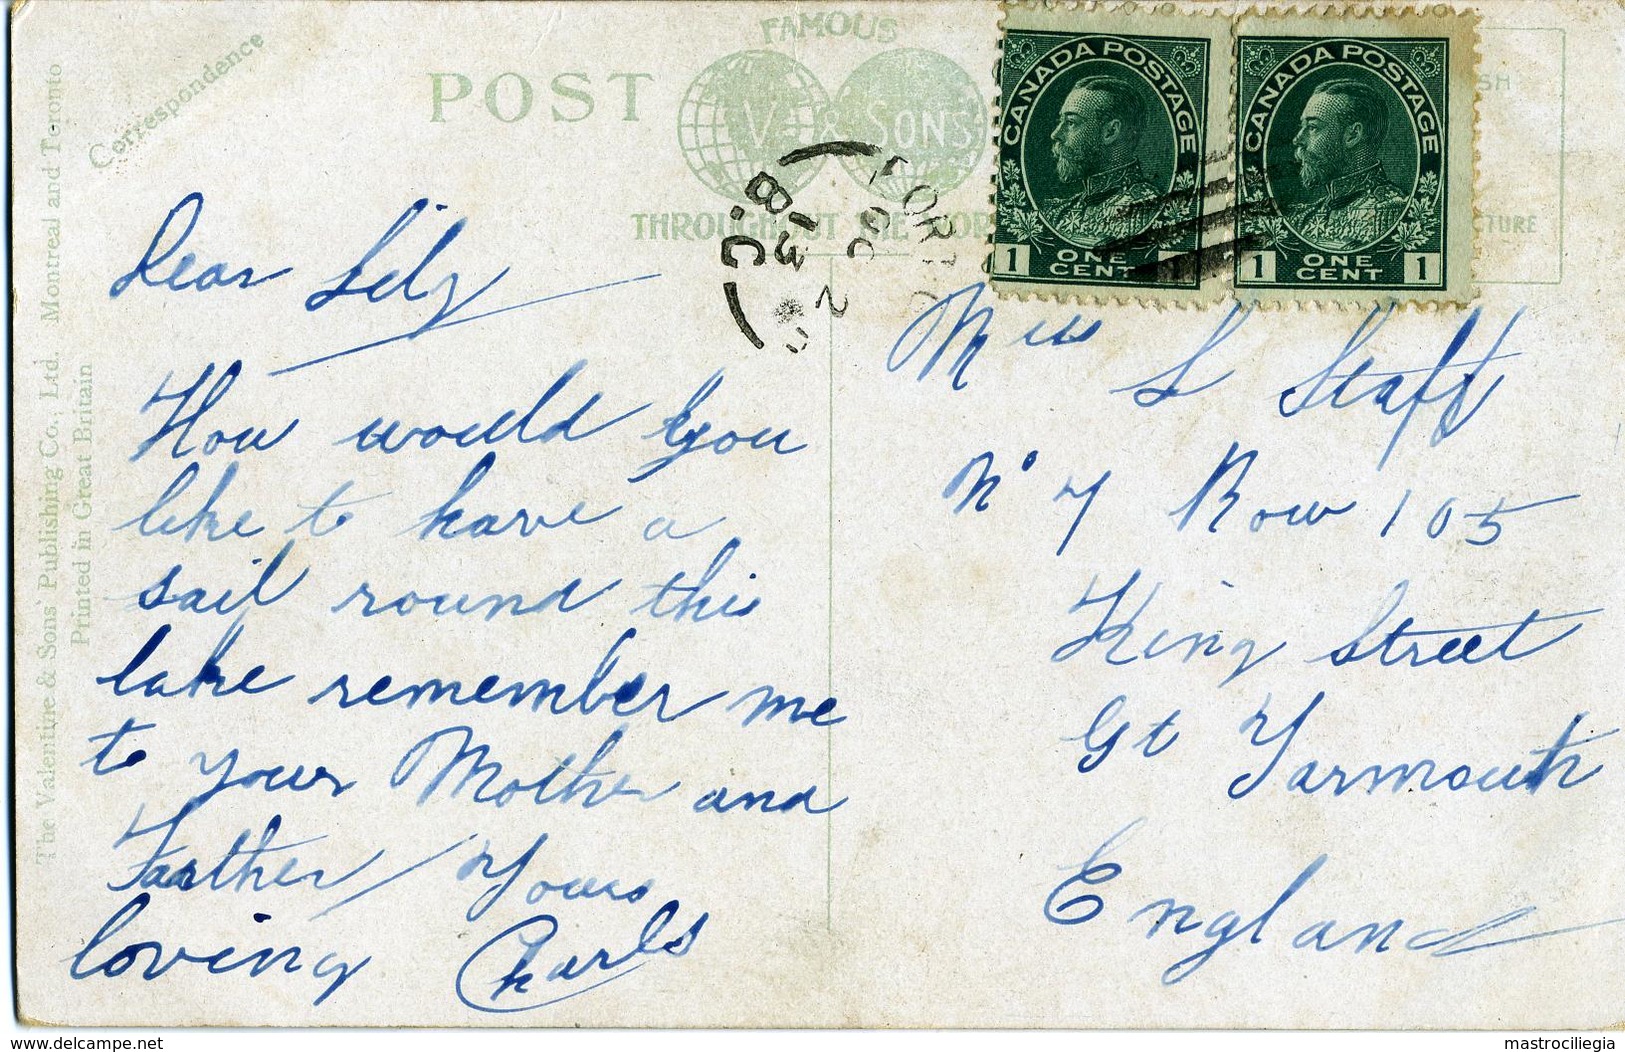 FAMOUS
POST
V & SONS
THROUGHOUT THE WOR
CANADA POSTAGE
1 ONE CENT
CANADA POSTAGE
1 ONE CENT 1
SH
CTURE
Correspondence
The Valentine & Sons' Publishing Co., Ltd. Montreal and Toronto
Printed in Great Britain
2
13
B.C
Dear Lily
How would you
like to have a
sail round this
lake remember me
to your Mother and
Farther / Yours
loving Charls
Miss L Staff
No 7 Row 105
King Street
Gt Yarmouth
England
delcampe.net
mastrociliegia